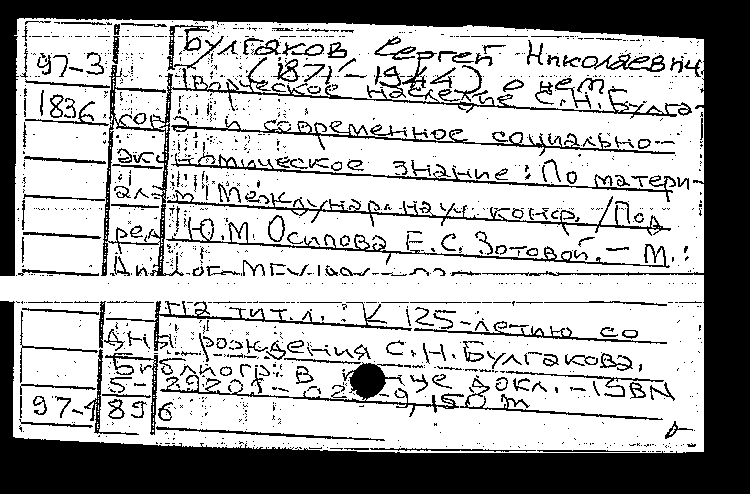 Булгаков Сергей Николаевич
97-3 (1871-1944) о нем.
Творческое наследие С.Н.Булга-
1836 кова и современное социально-
экономическое знание: По матери-
алам Междунар. науч. конф. / Под
ред. Ю.М. Осипова, Е.С. Зотовой. - М.:
Диалог-МГУ,
На тит. л.: К 125-летию со
дня рождения С.Н. Булгакова.
Библиогр. в конце докл. - ISBN
5-29209-02 -9, 150 т